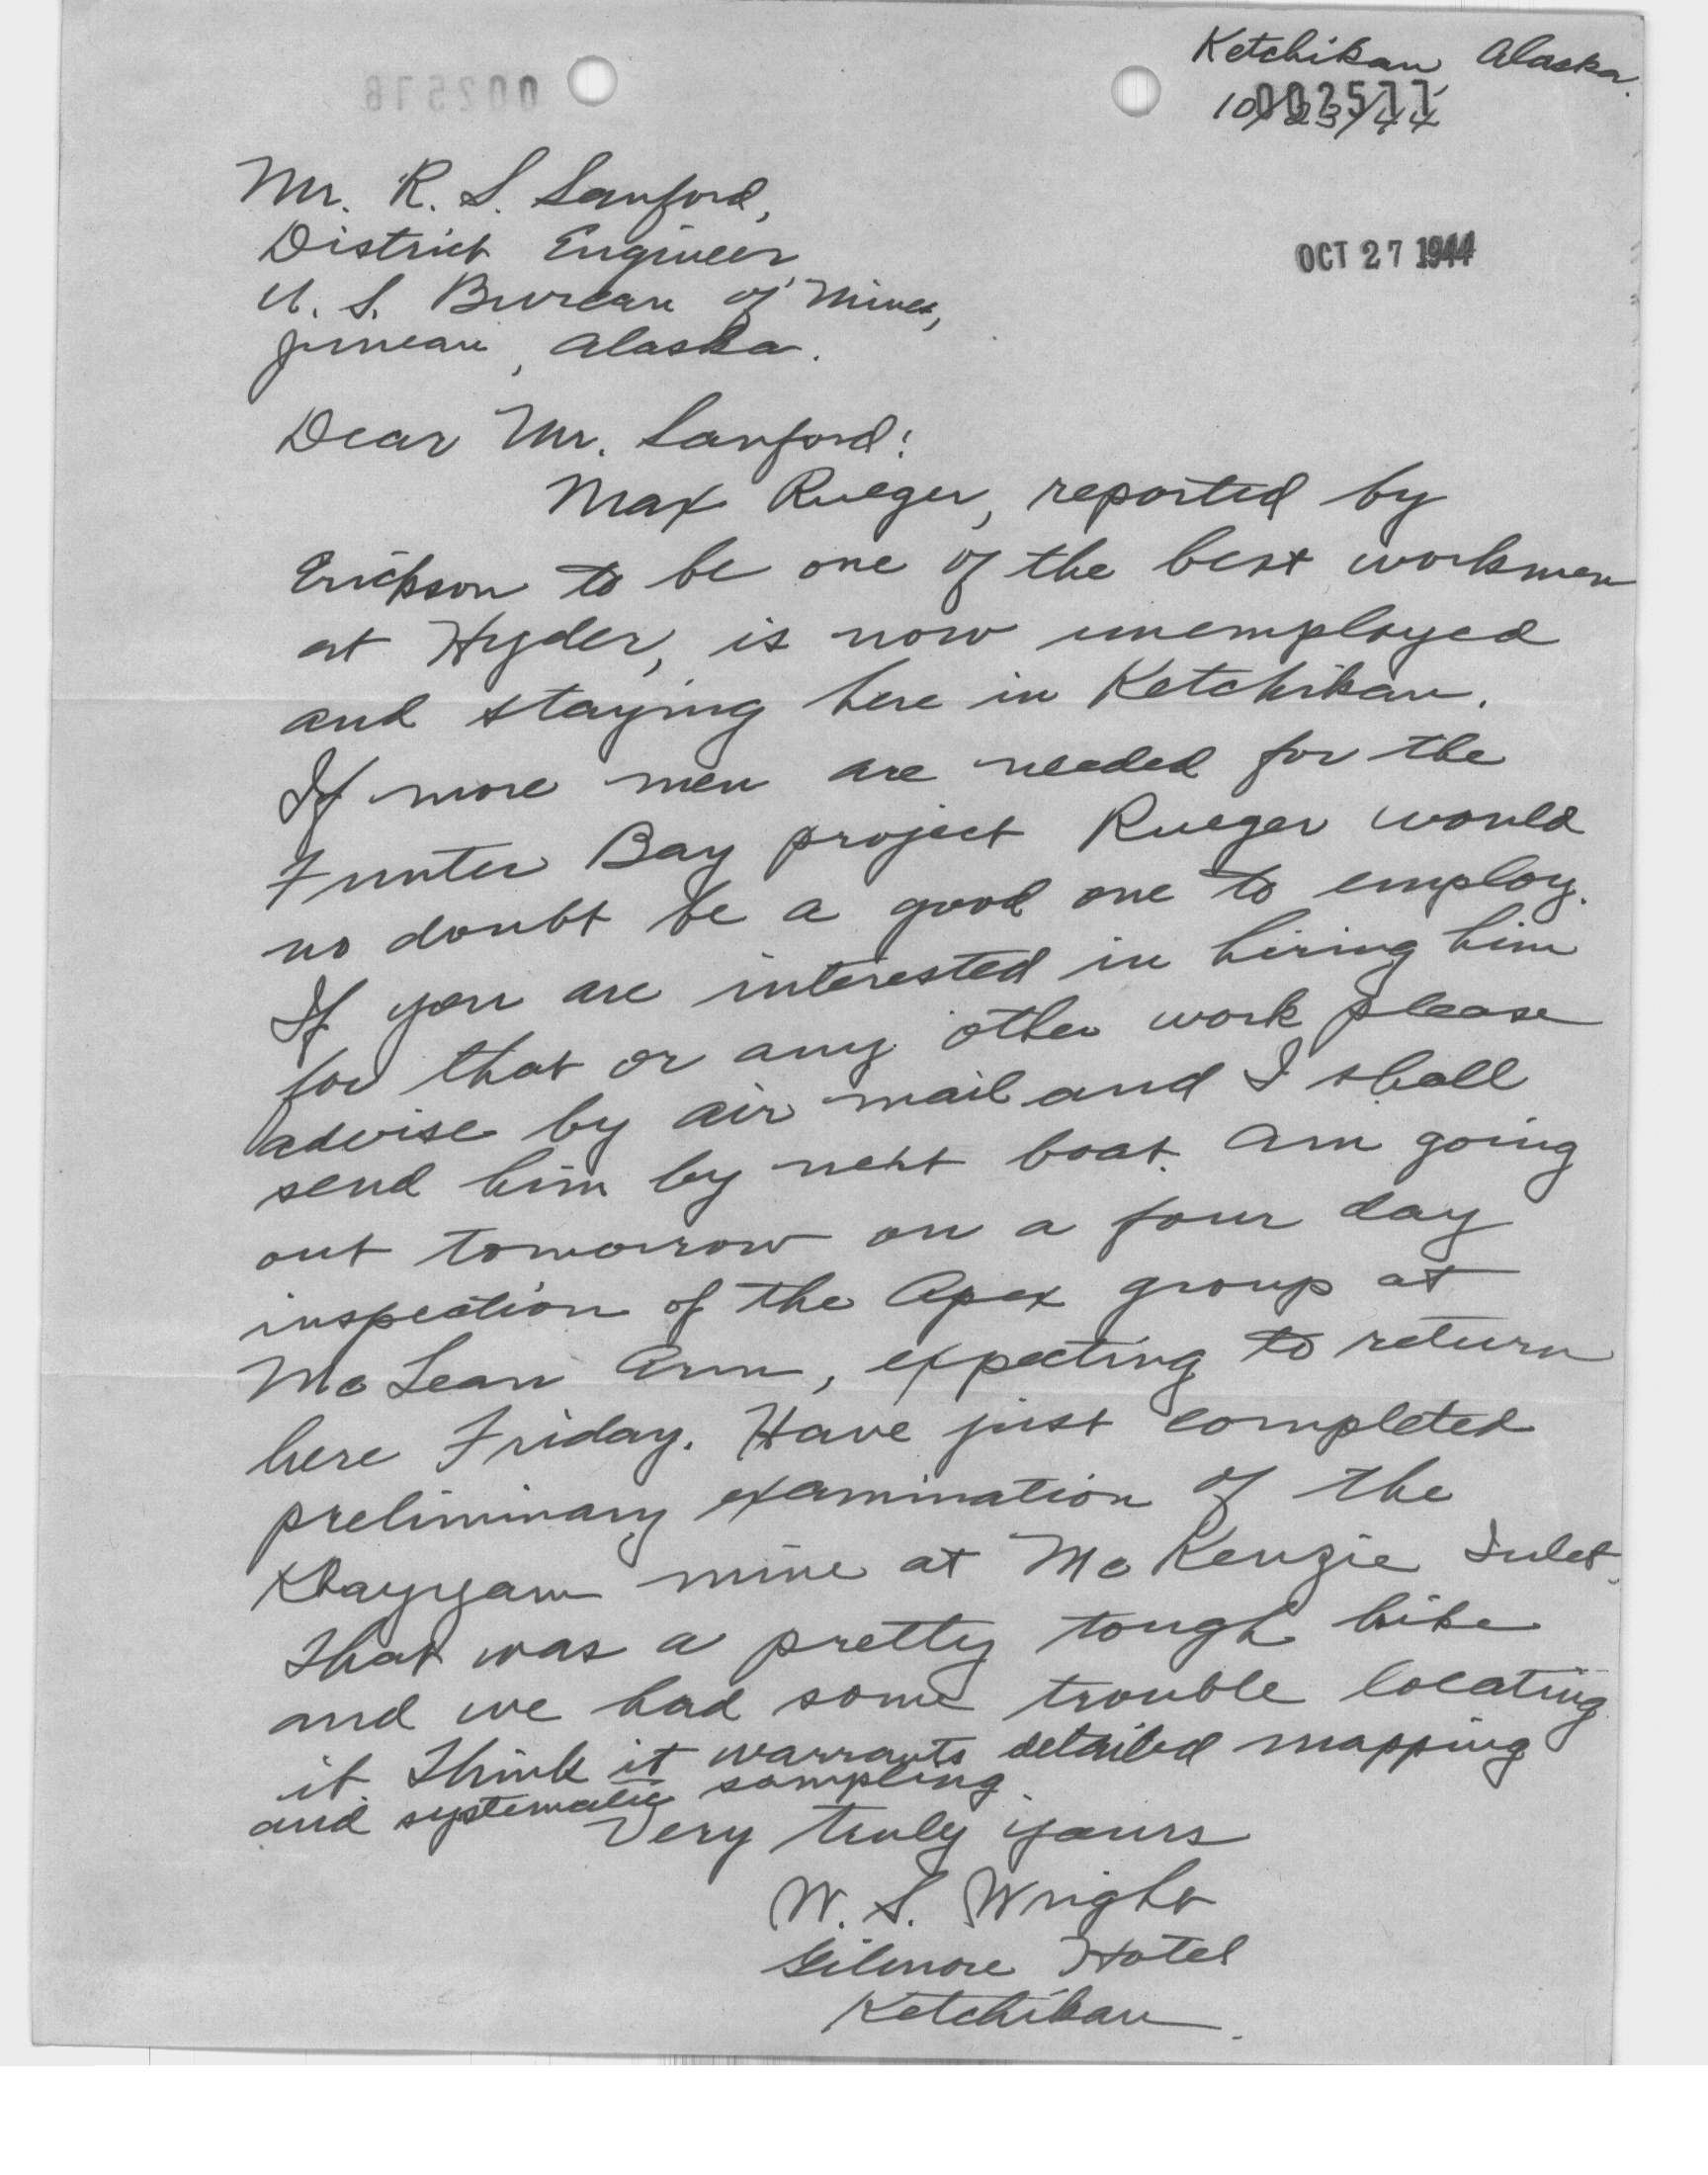 Ketchikan, Alaska.
002577
10/23/44
002578
Mr. R. S. Sanford,
District Engineer,
OCT 27 1944
U. S. Bureau of Mines,
Juneau, Alaska.
Dear Mr. Sanford:
Max Rueger, reported by
Erickson to be one of the best workmen
at Hyder, is now unemployed
and staying here in Ketchikan.
If more men are needed for the
Funter Bay project Rueger would
no doubt be a good one to employ.
If you are interested in hiring him
for that or any other work please
advise by air mail and I shall
send him by next boat. Am going
out tomorrow on a four day
inspection of the Apex group at
McLean Arm, expecting to return
here Friday. Have just completed
preliminary examination of the
Khayyam mine at McKenzie Inlet.
That was a pretty tough hike
and we had some trouble locating
it. Think it warrants detailed mapping
and systematic sampling
Very truly yours
W. S. Wright
Gilmore Hotel
Ketchikan.